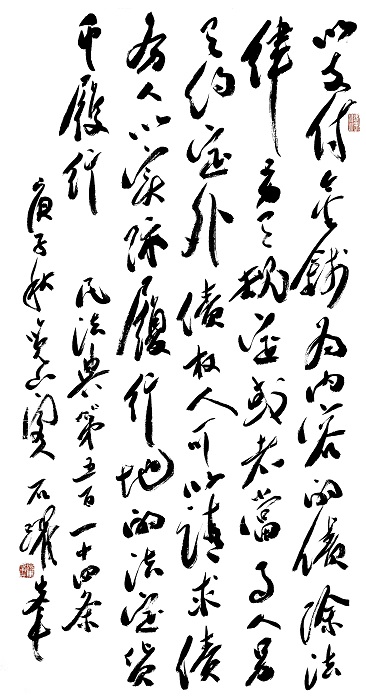 以支付金錢为内容的债除法
律另有规定或者當事人另
有约定外债权人可以請求债
务人以实际履行地的法定货
币履行 民法典第五百一十四条
庚子秋 石躍峯